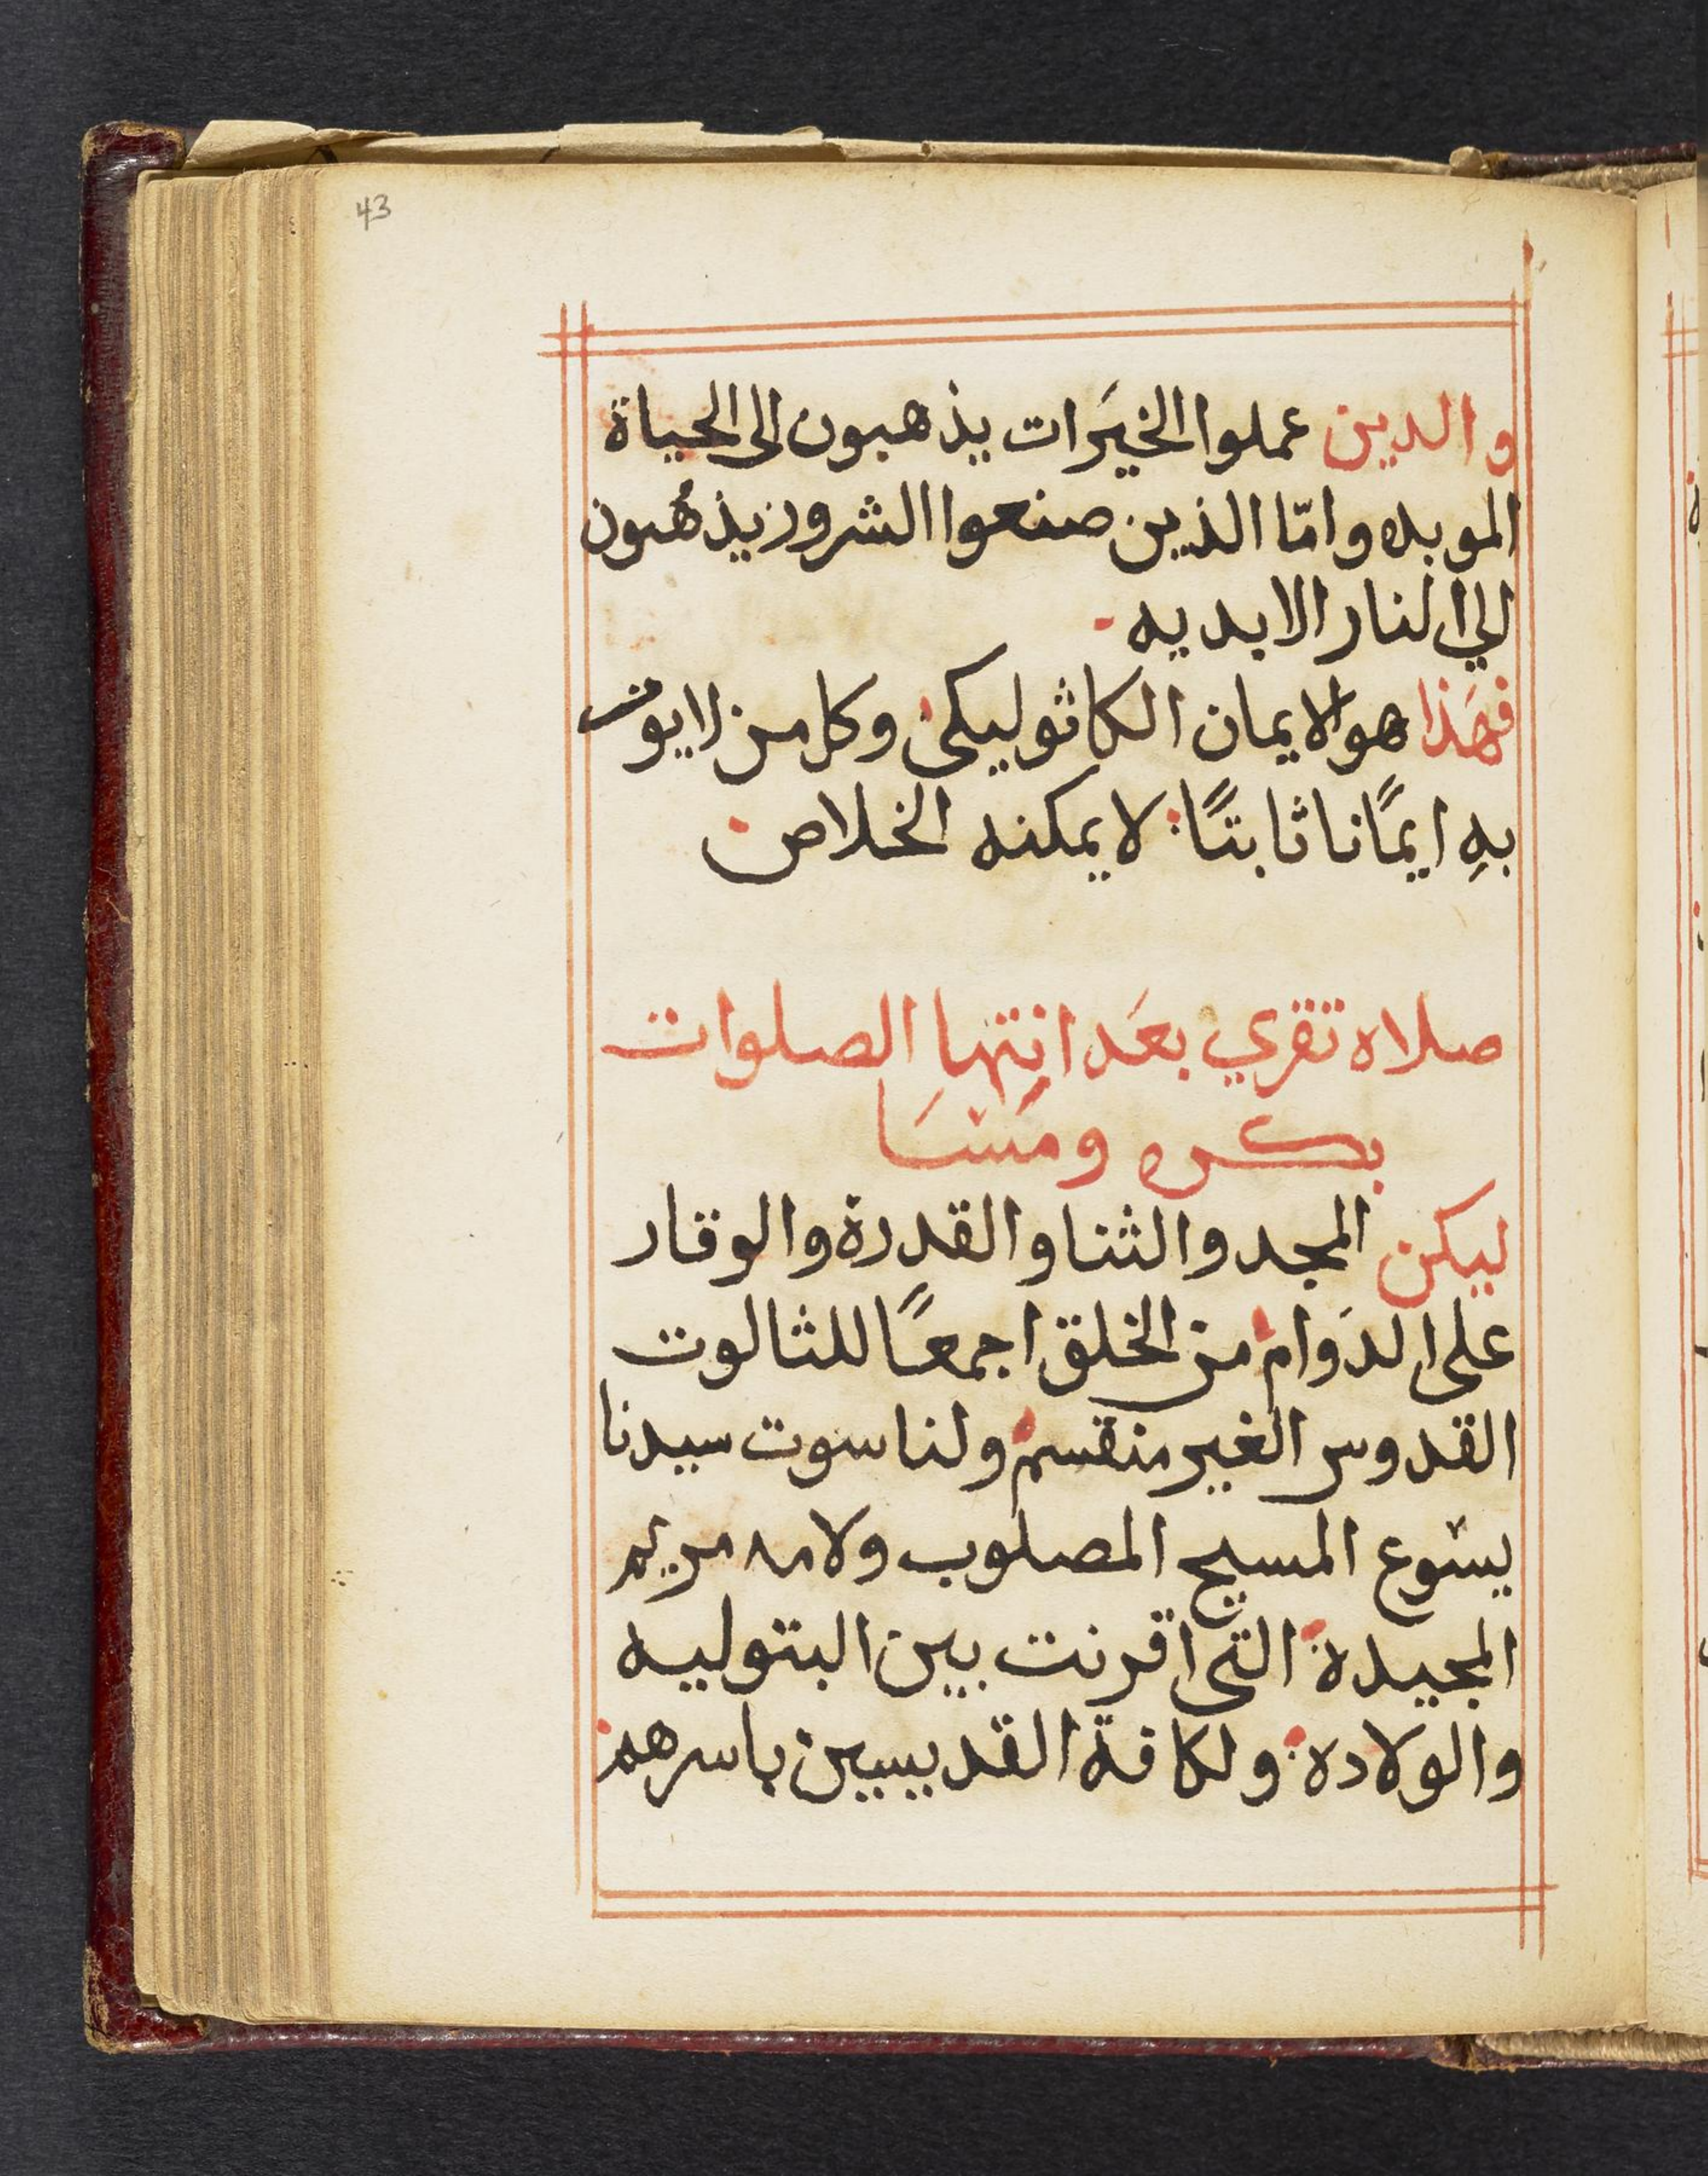 43
والدين عملوا الخيَرات يذهبون الى الحياة
الموبده وامّا الذين صنعوا الشرور يذهُبون
الي النار الابديه
فهَذا هو الايمان الكاثوليكى وكل من لا يومن
بهِ ايمًانا ثابتًا لا يمكنه الخلاص
صلاه تقري بعَد انتها الصلوات
بكره ومَسَا
ليكن المجد والثنا والقدرة والوقار
على الدَوام من الخلق اجمعًا للثالوت
القدوس الغير منقسم ولناسوت سيدنا
يسوع المسيح المصلوب ولامه مريم
المجيدة التى اقرنت بين البتوليه
والولاده ولكافة القديسين باسرهم